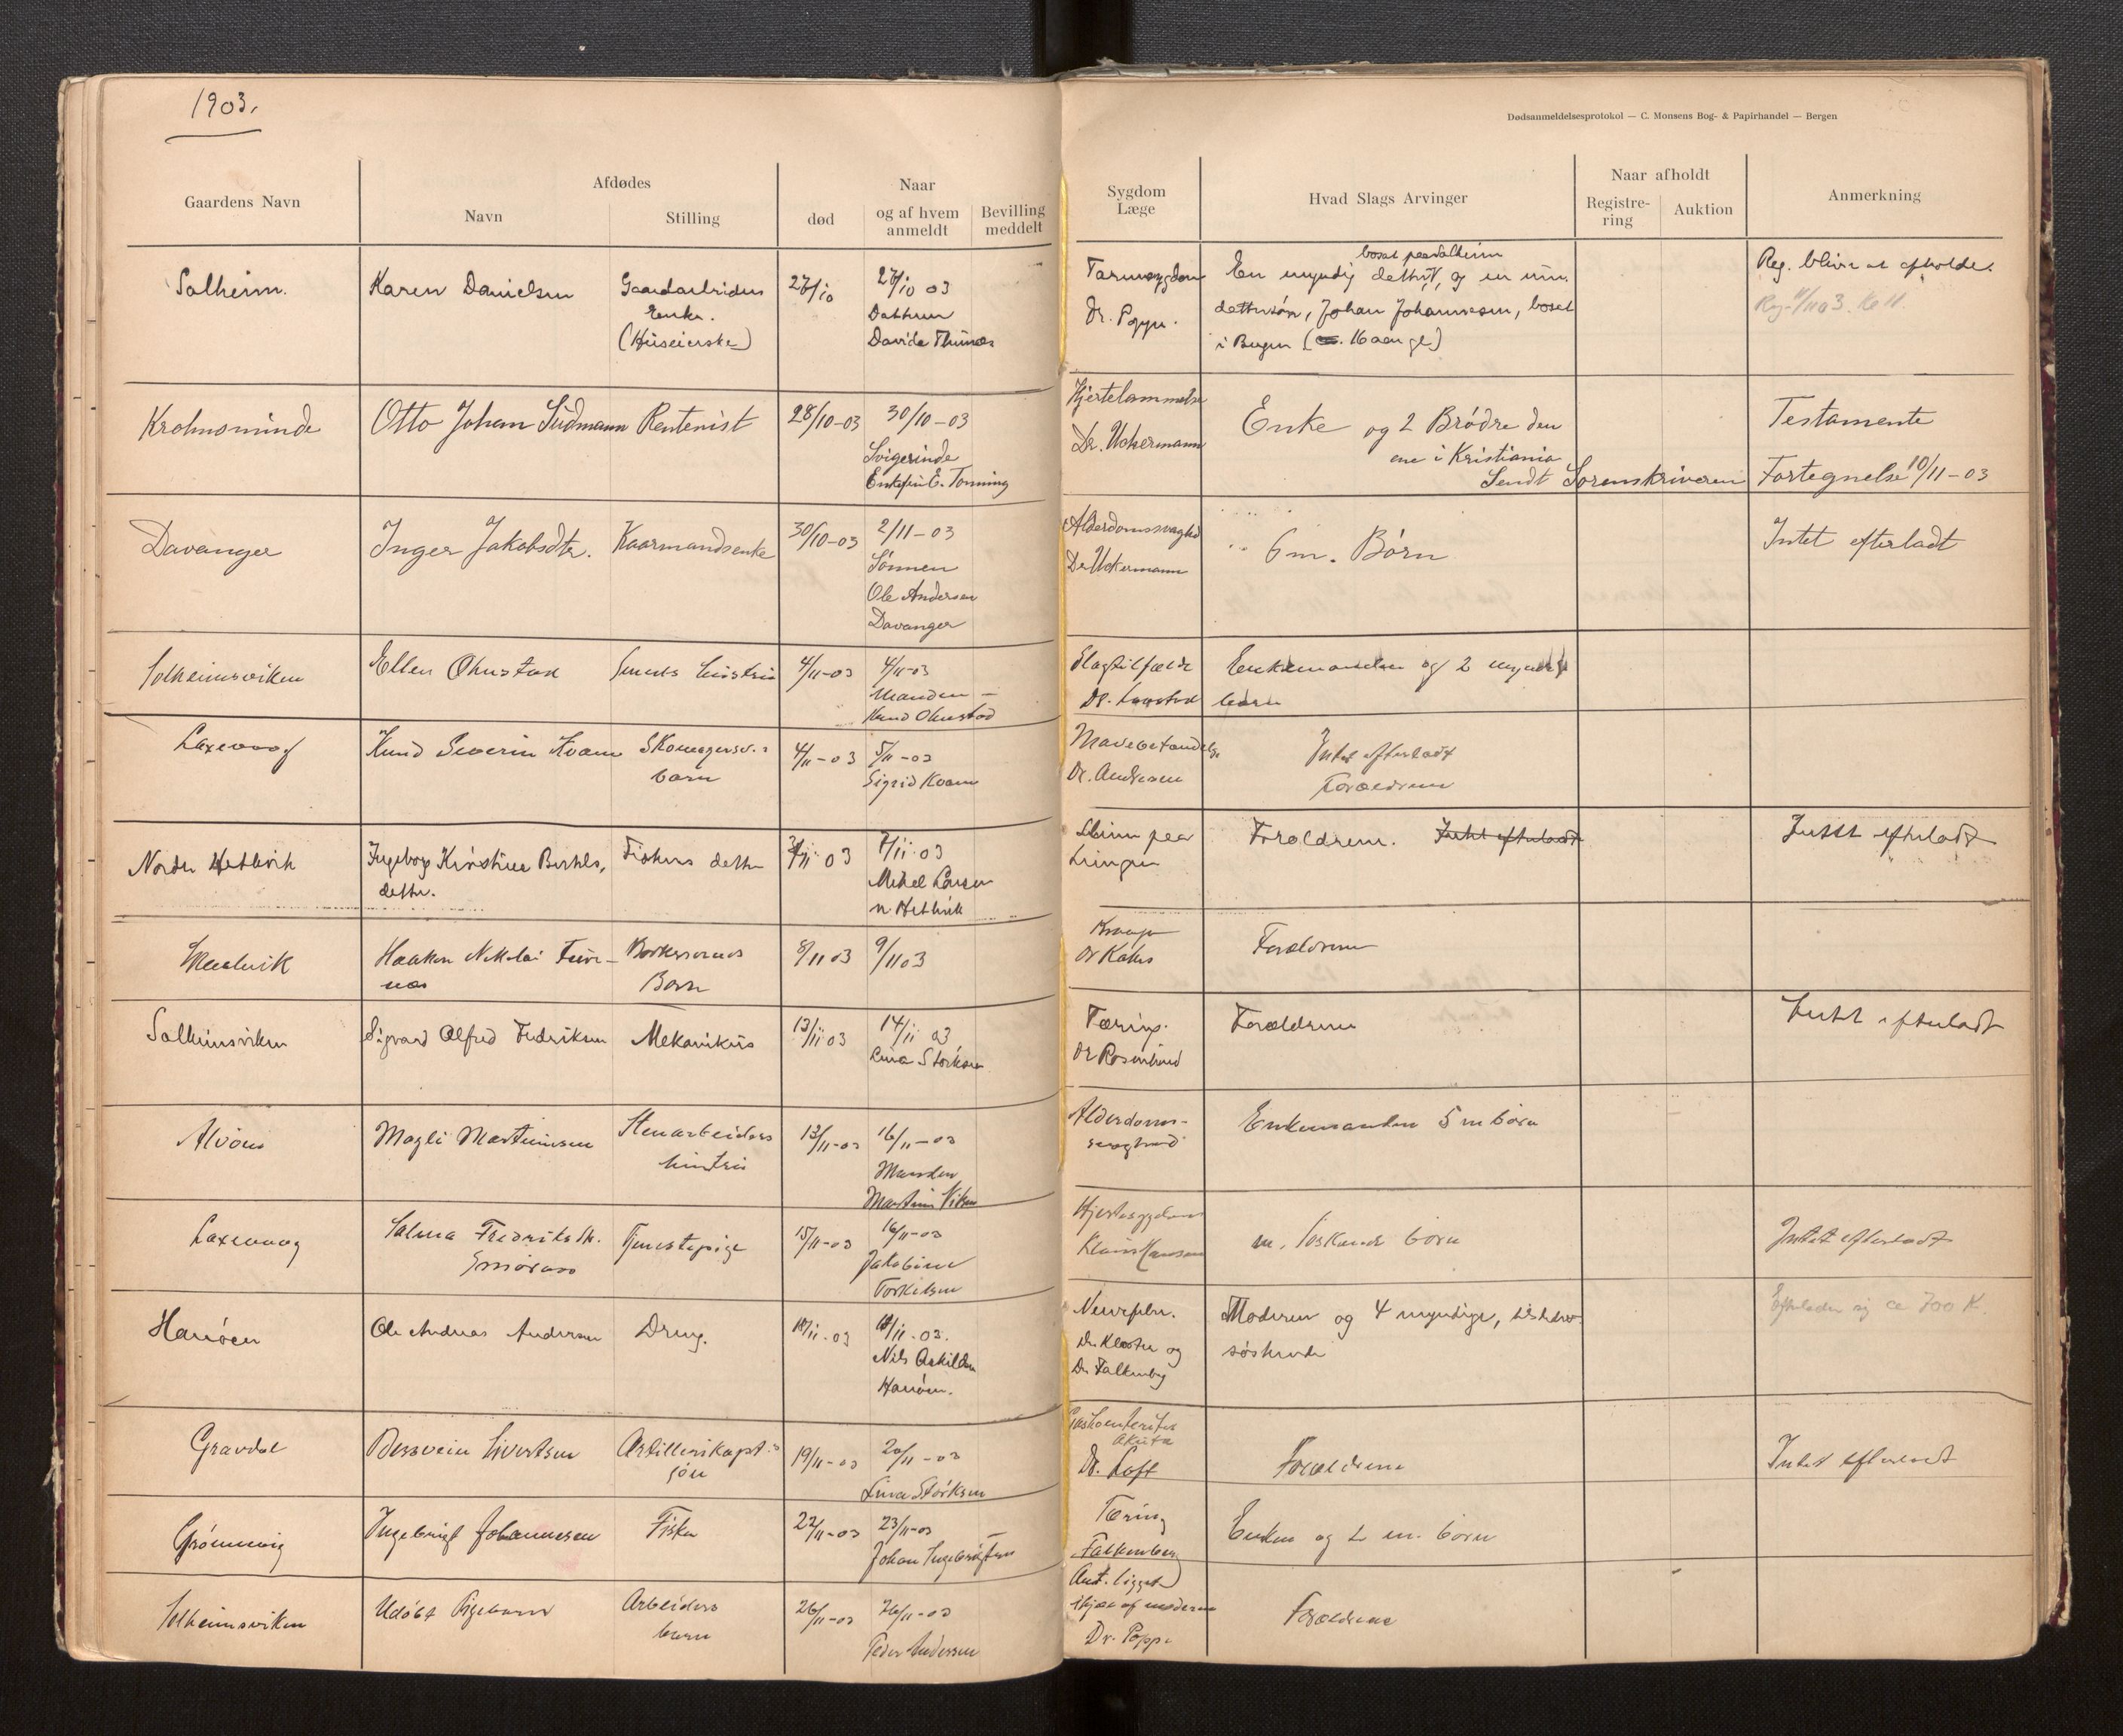 1903.
Dødsanmeldelsesprotokol — C. Monsens Bog- & Papirhandel — Bergen
Gaardens Navn
Afdødes
Navn
Stilling
Naar
død
og af hvem anmeldt
Bevilling meddelt
Sygdom
Læge
Hvad Slags Arvinger
Naar afholdt
Registre-
ring
Auktion
Anmerkning
Solheim.
Karen Danielsen
Gaardarbeiders
Enke.
(Huseierske)
27/10
27/10 03
Datteren
Davida
Tarmsygdom
Dr. Popp.
bosat paa Solheim
En myndig datter, og en um.
dattersøn, Johan Johannesen, bosat
i Bergen (16 aar gl)
Reg. bliver at afholde.
Krohnsminde
Otto Johan Sudmann
Rentenist
28/10-03
30/10-03
Svigerinde
Enkefru E. Tonning
Hjertelammelse
Dr. Uckermann
Enke og 2 Brødre den
ene i Kristiania
Sendt Sorenskriveren
Testamente
Fortegnelse 10/11-03
Davanger
Inger Jakobsdtr.
Kaarmandsenke
30/10-03
2/11-03
Sønnen
Ole Andersen
Davanger
Alderdomssvaghed
Dr Uckermann
6 m. Børn
Intet efterladt
Solheimsviken
Ellen Ohnstad
Smeds hustru
4/11-03
4/11-03
Manden —
Knud Ohnstad
Slagtilfælde
Dr.
Enkemanden og 2 myndige
børn
Laxevaag
Knud Severin Kvam
barn
4/11-03
5/11-03
Sigrid Kvam
Mavebetændelse
Dr. Andersen
Intet efterladt
Forældrene
Nordre Hetlevik
Ingeborg Kristine Bertels,
datter.
Fiskers datter
7/11-03
Mikel Larsen
n. Hetlevik
Sliim paa
Lungen
Forældrene. Intet efterladt
Intet efterladt
Haakon Nikolai Fure-
næs
Barn
8/11 03
9/11 03
Forældrene
Solheimsviken
Sigvard Alfred Fredriksen
Mekanikus
13/11 03
14/11 03
Lina Størksen
Tæring.
Dr Rosenlund
Forældrene
Intet efterladt
Alvøen
Magli Martinsen
Stenarbeiders
hustru
13/11-03
16/11-03
Manden
Martin Viken
Alderdoms-
svaghed
Enkemanden 5 m børn
Laxevaag
Salma Fredriksdtr.
Tjenestepige
15/11-03
16/11-03
Jakobine
Torkilsen
Hjertesygdom
Klaus Hanssen
børn
Intet efterladt
Hanøen
Ole Andreas Andersen
Dreng.
18/11-03
18/11-03.
Nils Askildsen
Hanøen.
Nervefeber.
Dr. Kloster og
Dr. Falkenberg
Moderen og 4 myndige,
søskende
Efterlader sig ca 700 K.
Gravdal
Sivertsen
Artillerikapt.s
søn
19/11-03
20/11-03
Lina Størksen
Gastroenteritis
akuta
Dr. Loft
Forældrene
Intet efterladt
Grønnevig
Ingebrigt Johannesen
Fisker
22/11-03
23/11-03
Johan Ingebrigtsen
Tæring
Falkenberg
Enken og 2 m. børn
Solheimsviken
Udøbt Pigebarn
Arbeiders
barn
26/11-03
26/11-03
Peder Andersen
Ant. ligget
ihjæl af moderen
Dr. Popp.
Forældrene